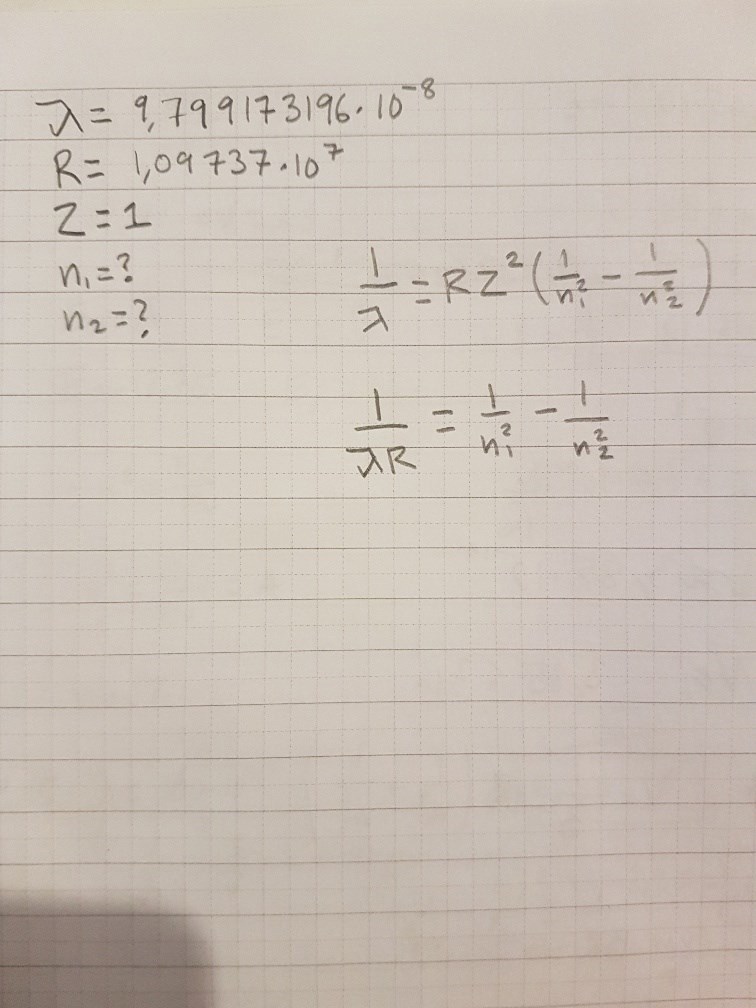 λ = 9,799173196·10⁻⁸
R = 1,09737·10⁷
Z = 1
n₁ = ?
n₂ = ?
1/λ = RZ²(1/n₁² − 1/n₂²)
1/λR = 1/n₁² − 1/n₂²